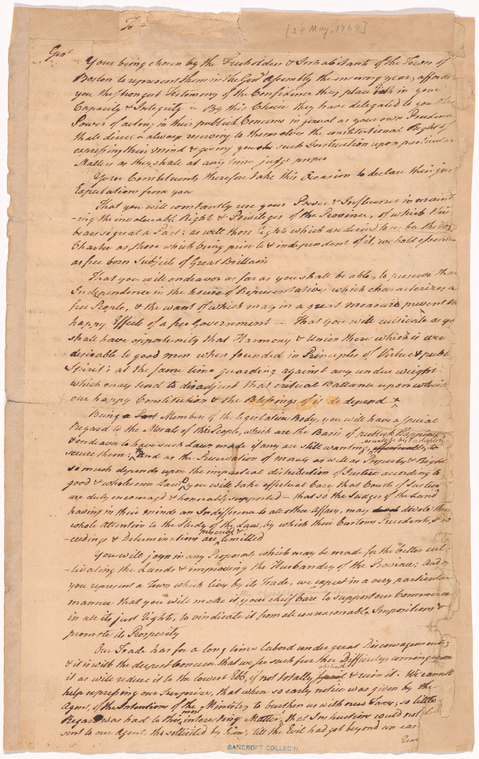 [24 May, 1764]
To
Gent
Your being chosen by the Freeholders & Inhabitants of the Town of
Boston to represent them in the Genl Assembly the ensuing year, affords
you the strongest Testimony of the Confidence they place in your
Capacity & Integrity — By this Choice they have delegated to you the
Power of acting in their publick Concerns in general as your own Prudence
shall direct — always reserving to themselves the constitutional Right of
expressing their Mind & giving you such Instruction upon particular
Matters as they shall at any time judge proper
Your Constituents therefore take this Occasion to declare their just
Expectations from you
That you will constantly use your Power & Influence in maintain
-ing the invaluable Rights & Privileges of the Province, of which this
bears signal a Part: as well those Rights which are derived to us by the
Charter as those which being prior to & independent of it, we hold essential
as free born Subjects of Great Brittain
That you will endeavor as far as you shall be able, to preserve that
Independence in the house of Representatives which characterizes a
free People, & the want of which may in a great measure prevent the
happy Effects of a free Government — That you will cultivate as you
shall have opportunity that Harmony & Union there which is ever
desirable to good men when founded in Principles of Virtue & publick
Spirit; at the same time guarding against any undue weight
which may tend to disadjust that critical Ballance upon which
our happy Constitution & the Blessings of it do depend
Being Member of the Legislative Body, you will have a special
Regard to the Morals of this People, which are the Basis of publick Happiness
& endeavor to have such Laws made if any are still wanting,
secure them: And as the Preservation of Morals as well as Property & Right
so much depends upon the impartial distribution of Justice according to
good & wholesome Laws, you will take effectual Care that Courts of Justice
are duly encouraged & honorably supported — that so the Judges of the Land
having in their minds an Indifference to all other Affairs, may devote their
whole attention to the Study of the Law, by which their
-ceedings & Determinations are
You will joyn in any Proposal which may be made for the better cul
-tivating the Lands & improving the Husbandry of the Province: And as
you represent a Town which lives by its Trade, we expect in a very particular
manner that you will make it your chief Care to support our Commerce
in all its just Rights, to vindicate it from all unreasonable Impositions &
promote its Prosperity
Our Trade has for a long time labord under great Discouragements;
& it is with the deepest Concern that we see such further Difficultys coming upon
it as will reduce it to the lowest Ebb, if not totally obstruct & ruin it. We cannot
help expressing our Surprize, that when so early notice was given by the
Agent, of the Intentions of the Ministry to burthen us with new Taxes, so little
Regard was had to this most interesting Matter, that
sent to our Agent, tho sollicited by him, till the Evil had got beyond an easy
BANCROFT COLLECN.